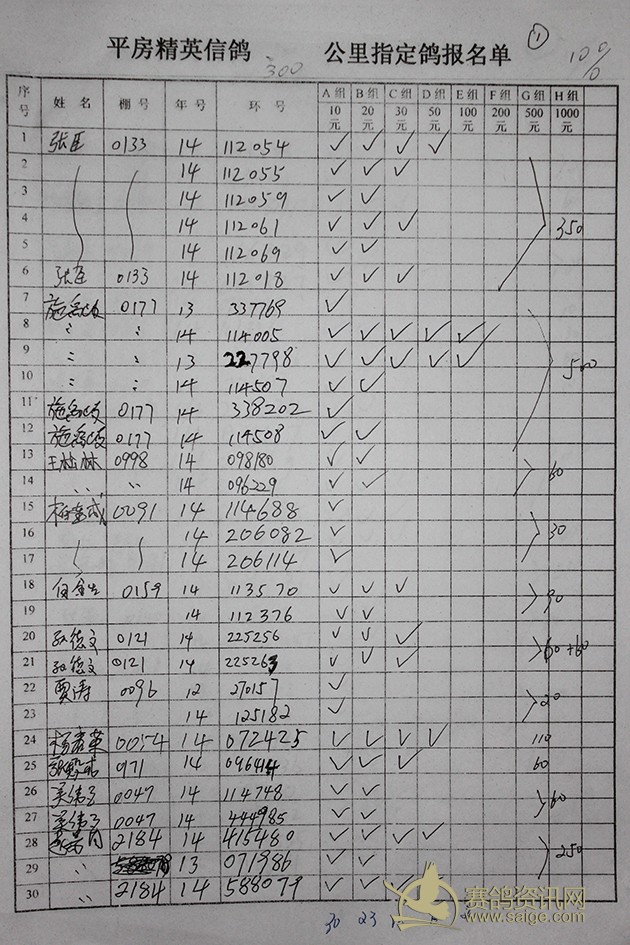 ①
平房精英信鸽 300 公里指定鸽报名单 10%
序号 姓名 棚号 年号 环号 A组 10元 B组 20元 C组 30元 D组 50元 E组 100元 F组 200元 G组 500元 H组 1000元
1 张臣 0133 14 112054 ✓ ✓ ✓ ✓
2 14 112055 ✓ ✓ ✓
3 14 112059 ✓ ✓
4 14 112061 ✓ ✓ ✓ 350
5 14 112069 ✓ ✓
6 张臣 0133 14 112018 ✓ ✓ ✓
7 0177 13 337769 ✓
8 〃 〃 14 114005 ✓ ✓ ✓ ✓ ✓
9 〃 〃 13 227798 ✓ ✓ ✓ ✓ ✓
10 〃 〃 14 114507 ✓ ✓
11 0177 14 338202 ✓
12 0177 14 114508 ✓ ✓
13 0998 14 098180 ✓ ✓
14 〃 〃 14 096229 ✓ ✓ 60
15 0091 14 114688 ✓
16 14 206082 ✓ 30
17 14 206114 ✓
18 0159 14 113570 ✓ ✓ ✓
19 14 112376 ✓ ✓ 90
20 孙德文 0121 14 225256 ✓ ✓ ✓
21 孙德文 0121 14 225263 ✓ ✓ ✓ 60+60
22 贾涛 0096 12 270157 ✓
23 14 125182 ✓ 20
24 0054 14 072425 ✓ ✓ ✓ ✓ 110
25 971 14 ✓ ✓ ✓ 60
26 0047 14 114748 ✓ ✓
27 0047 14 444985 ✓ ✓ 60
28 2184 14 415480 ✓ ✓ ✓ ✓
29 〃 13 071986 ✓ ✓ 250
30 〃 2184 14 588079 ✓ ✓
30 23
赛鸽资讯网
www.saige.com